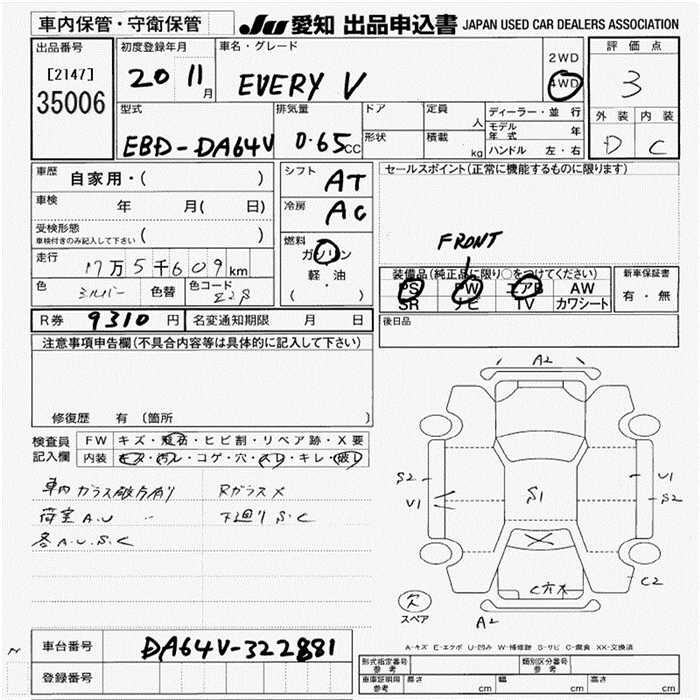 車内保管・守衛保管 JU 愛知 出品申込書 JAPAN USED CAR DEALERS ASSOCIATION
出品番号 初度登録年月 車名・グレード 2WD 評価点
[2147] 20 11月 EVERY V 4WD 3
35006 型式 排気量 ドア 定員 人 ディーラー・並行 外装 内装
EBD-DA64V 0.65CC 形状 積載 kg モデル年式 年 D C
ハンドル 左・右
車歴 自家用・( ) シフト AT セールスポイント(正常に機能するものに限ります)
車検 年 月( 日) 冷房 AC
受検形態 車検付きのみ記入して下さい ( ) FRONT
燃料 ガソリン
走行 17万5千609km 軽油 装備品(純正品に限り○をつけてください) 新車保証書
色 シルバー 色替 色コード Z2S ( ・ ) PS PW エアB AW 有・無
SR ナビ TV カワシート
R券 9310円 名変通知期限 月 日 後日品
注意事項申告欄(不具合内容等は具体的に記入して下さい)
修復歴 有 〔箇所 〕
検査員記入欄 FW キズ・飛石・ヒビ割・リペア跡・X要
内装 キズ・汚レ・コゲ・穴・スレ・キレ・破レ
車内ガラス破片有り Rガラス X
荷室 A.U 下廻り S.C
各 A.U.S.C
A2
S2 U1
V1 S1 S2
C2
欠 スペア
A2
A-キズ E-エクボ U-凹み W-補修跡 S-サビ C-腐食 XX-交換済
車台番号 DA64V-322881
登録番号
型式指定番号 参考 類別区分番号 参考
車庫証明用 参考 長さ cm 幅 cm 高さ cm